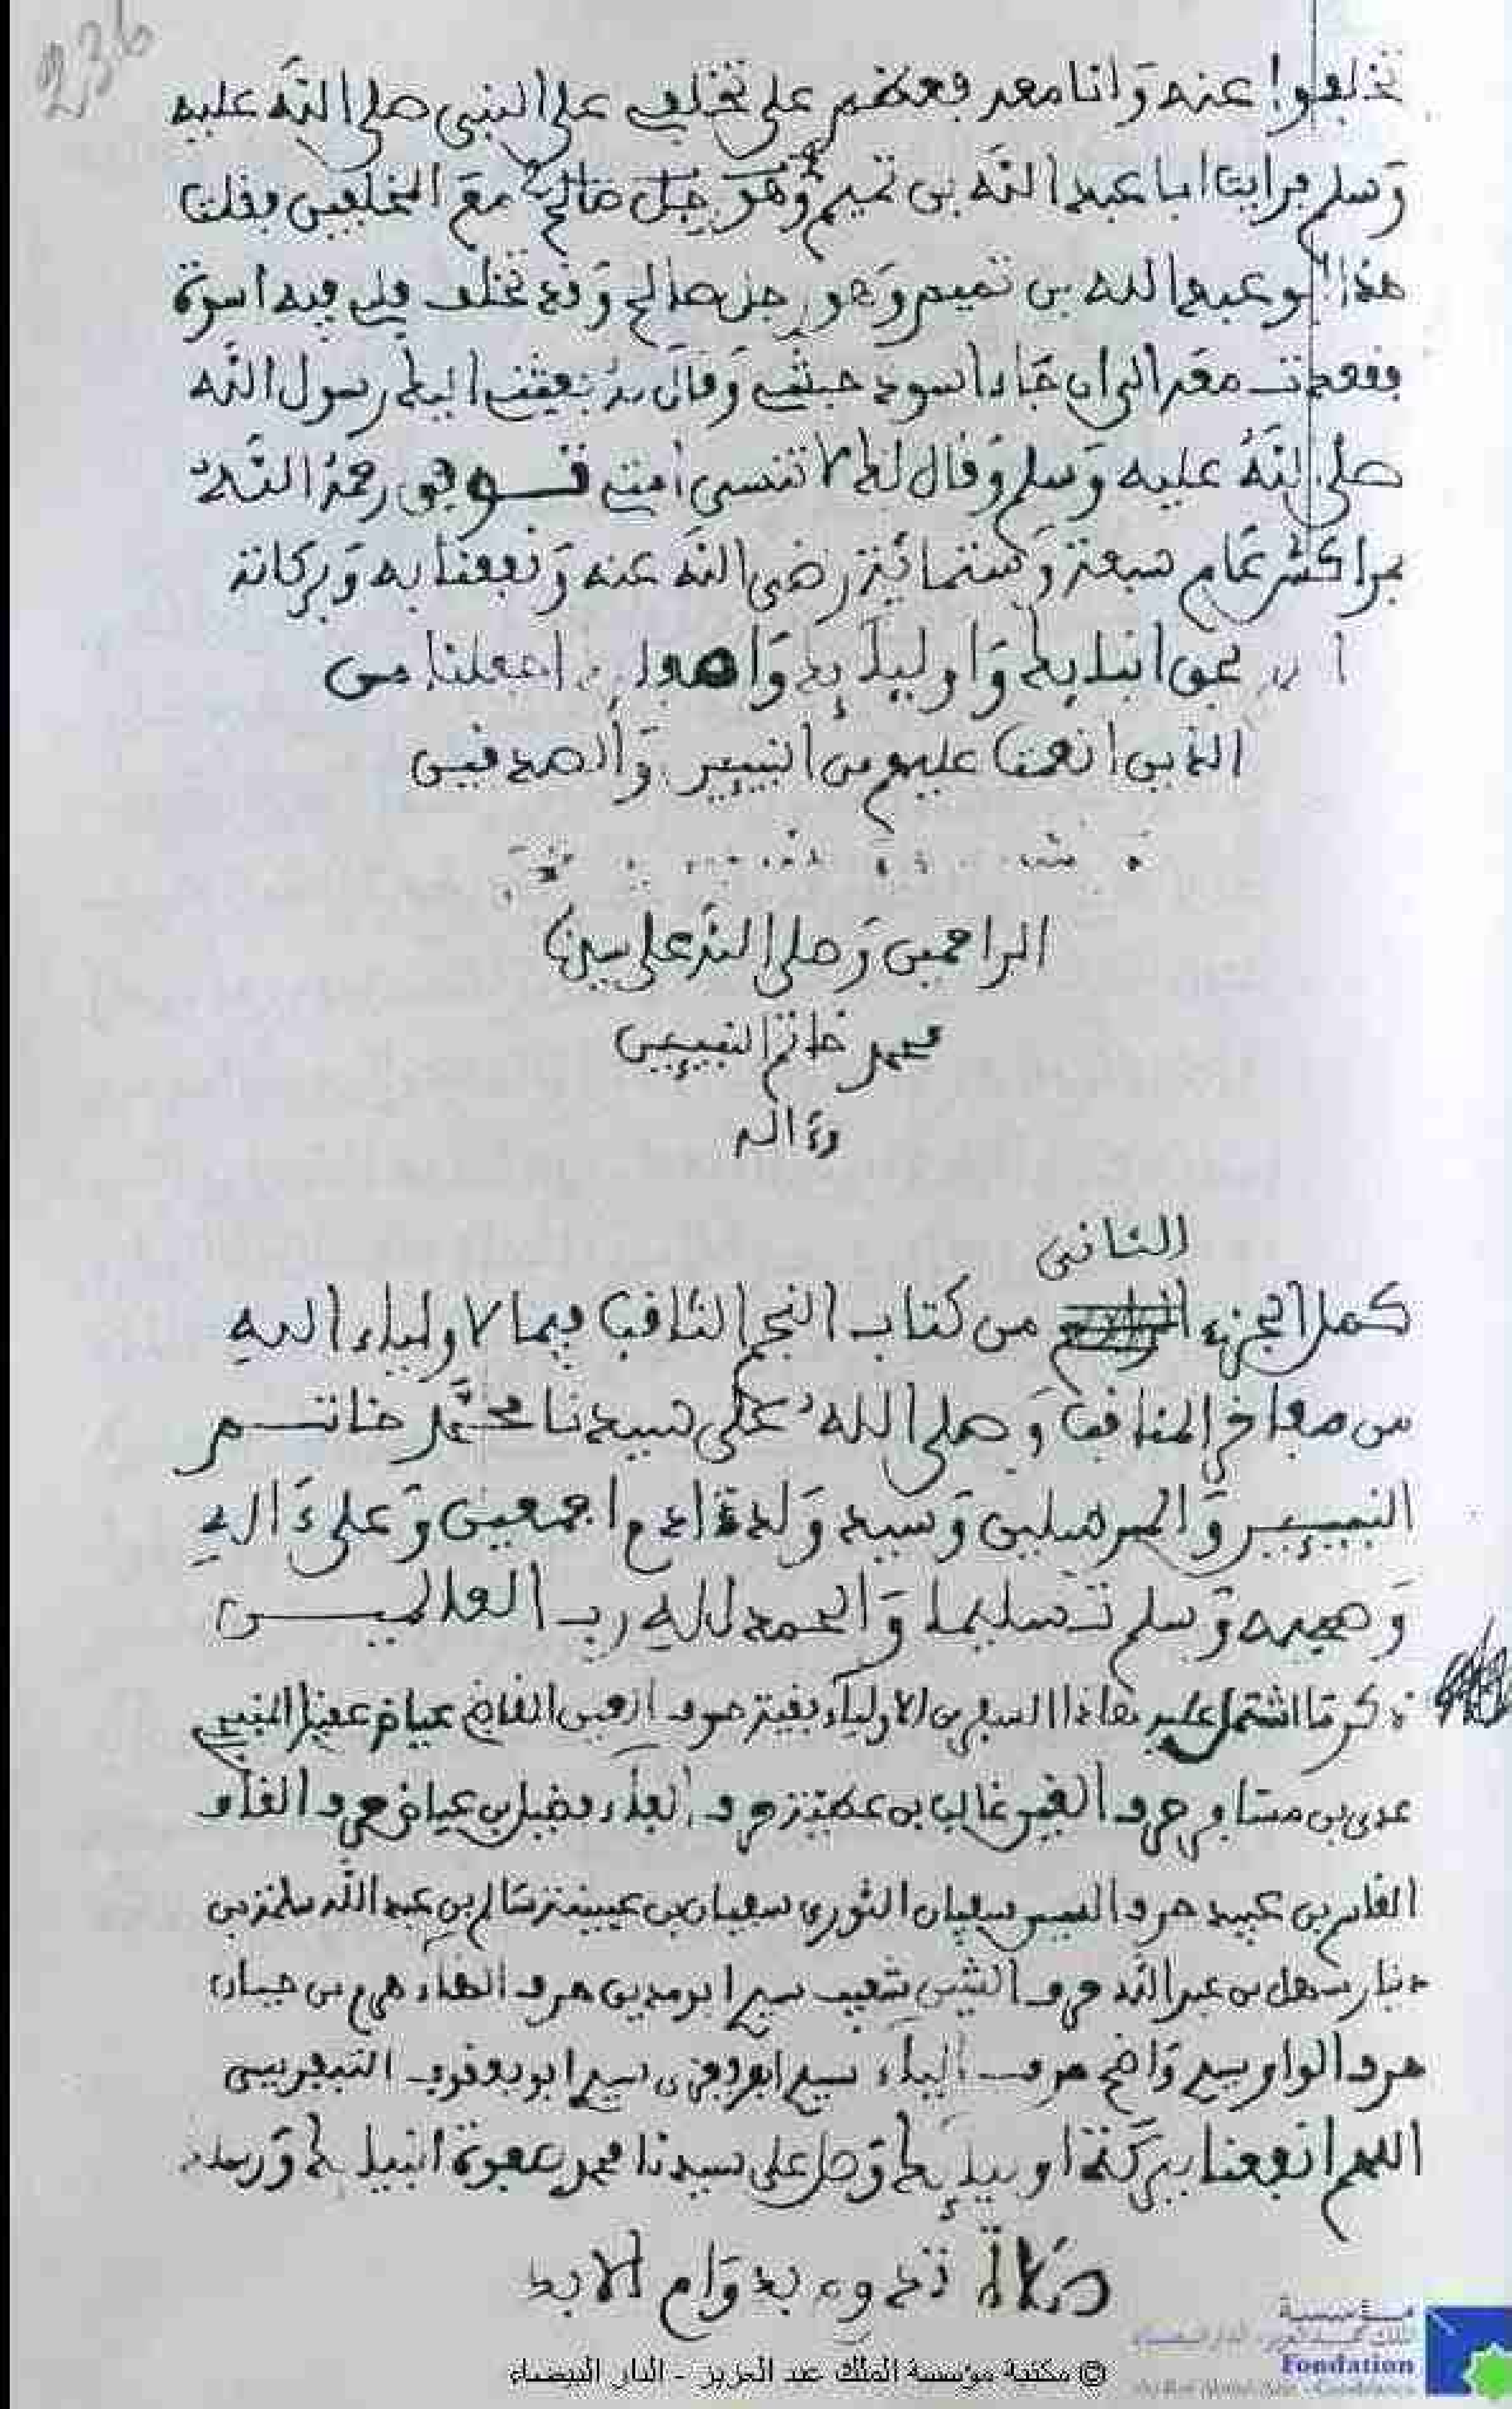 236
تخلفوا عنه وانا معه فعظم علي تخلفي على النبي صلى الله عليه
وسلم فرايت ابا عبد الله بن تميم وهو رجل صالح مع المخلفين فقلت
هذا ابو عبد الله بن تميم وهو رجل صالح وقد تخلف فلي فيه اسوة
فقعدت معه الى ان جاء اسود حبشي وقال لي بعثني اليك رسول الله
صلى الله عليه وسلم وقال لك لا تنسى امتي توفي رحمه الله
بمراكش عام سبعة وستمائة رضي الله عنه ونفعنا به وبركاته
بحق انبيايك واوليايك اجعلنا من
الذين انعمت عليهم من النبيين والصديقين
الراحمين وصلى الله على سيدنا
محمد خاتم النبيين
وءاله
الثاني
كمل الجزء من كتاب النجم الثاقب فيما لاولياء الله
من مفاخر المناقب وصلى الله على سيدنا محمد خاتم
النبيين والمرسلين وسيد ولد ءادم اجمعين وعلى ءاله
وصحبه وسلم تسليما والحمد لله رب العالمين
ذكر ما اشتمل عليه هاذا السفر من الاولياء بقية حرف العين القاضي عياض
عدي بن مسافر حرف الغين غالب بن عطية حرف الفاء فضيل بن عياض حرف القاف
القاسم بن عبيد حرف السين سفيان الثوري سفيان بن عيينة سالم بن عبد الله سلمة بن
دينار سهل بن عبد الله حرف الشين شعيب سيدي ابو مدين حرف الهاء هرم بن حيان
حرف الواو سيدي واضح حرف الياء سيدي ابو يعزى سيدي ابو يعقوب
اللهم انفعنا ببركة اوليايك وصل على سيدنا محمد صفوة انبيايك ورسلك
صلاة تدوم بدوام الابد
مؤسسة
الملك عبد العزيز الدار البيضاء
Fondation
© مكتبة مؤسسة الملك عبد العزيز - الدار البيضاء